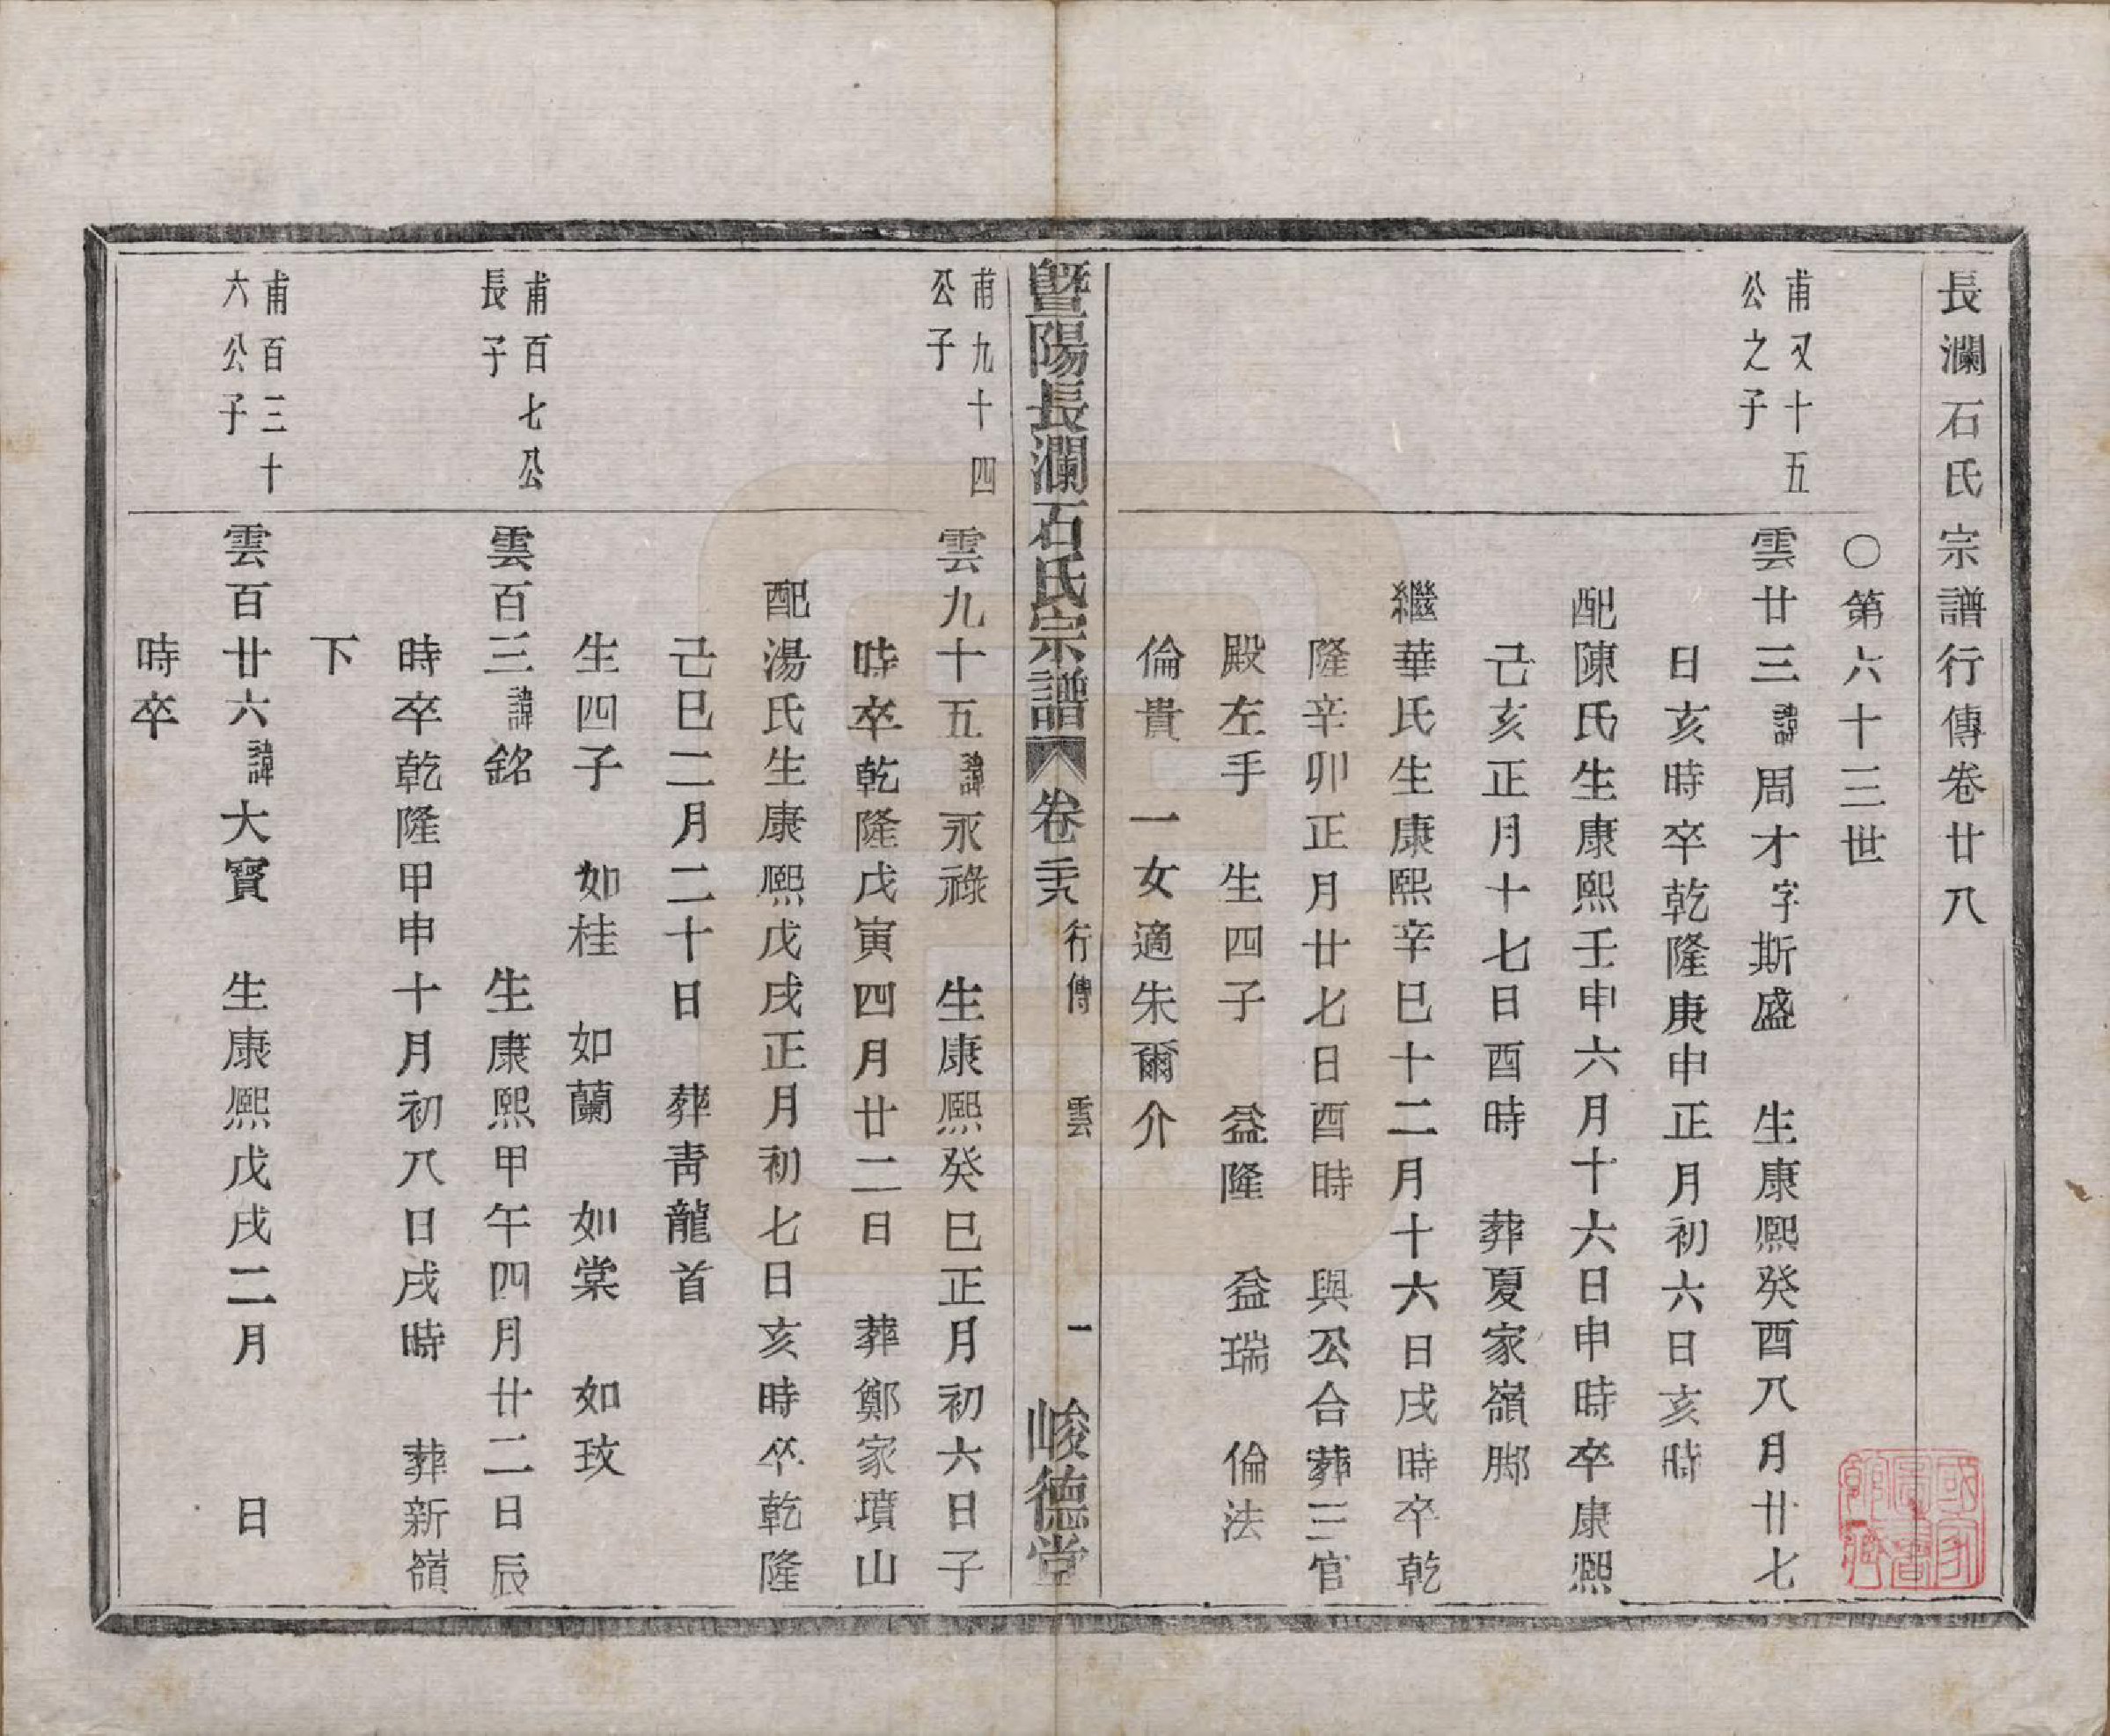 長瀾石氏宗譜行傳卷廿八
〇第六十三世
甫又十五
公之子
雲廿三諱周才字斯盛　生康熙癸酉八月廿七
日亥時卒乾隆庚申正月初六日亥時
配陳氏生康熙壬申六月十六日申時卒康熙
己亥正月十七日酉時　葬夏家嶺脚
繼華氏生康熙辛巳十二月十六日戌時卒乾
隆辛卯正月廿七日酉時　與公合葬三官
殿左手　生四子　益隆　益瑞　倫法
倫貴　一女適朱爾介
暨陽長瀾石氏宗譜　卷二十八　行傳　雲　一　峻德堂
甫九十四
公子
雲九十五諱永祿　生康熙癸巳正月初六日子
時卒乾隆戊寅四月廿二日　葬鄭家墳山
配湯氏生康熙戊戌正月初七日亥時卒乾隆
己巳二月二十日　葬青龍首
生四子　如桂　如蘭　如棠　如玫
甫百七公
長子
雲百三諱銘　生康熙甲午四月廿二日辰
時卒乾隆甲申十月初八日戌時　葬新嶺
下
甫百三十
六公子
雲百廿六諱大寶　生康熙戊戌二月　日
時卒
國家圖書館藏